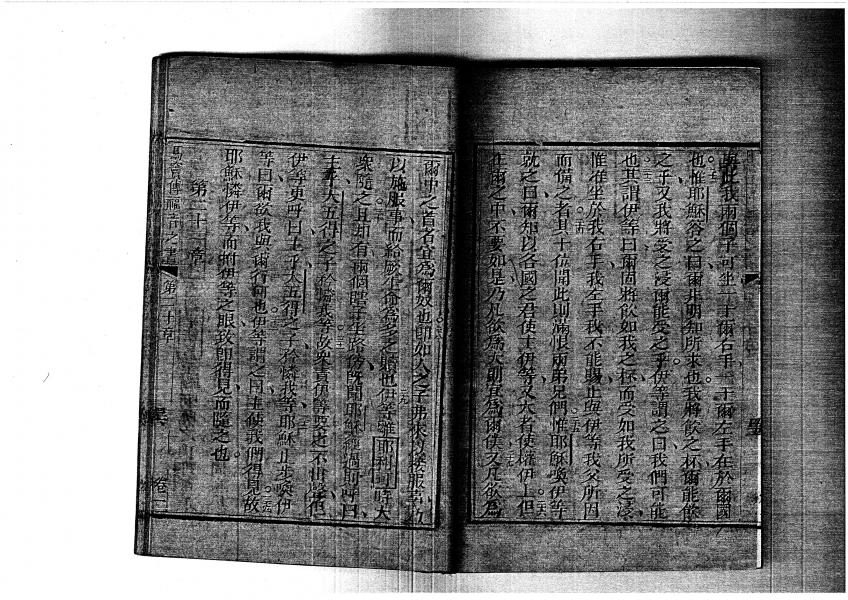 此我兩個子可坐一于爾右手一于爾左手在於爾國
也惟耶穌答之曰爾非明知所求也我將飲之杯爾能飲
之乎又我將受之浸爾能受之乎伊等謂之曰我們可能
也其謂伊等曰爾固將飲如我之杯而受如我所受之浸
惟准坐於我右手我左手我不能賜止與伊等我父所因
而備之者其十位聞此則滿恨兩弟兄們惟耶穌喚伊等
就之曰爾知以各國之君使主伊等又大者使權伊上但
在爾之中不要如是乃凡欲為大則宜為爾僕又凡欲為
爾中之首者宜為爾奴也即如人之子弗來
以施服事而給厥生命為多之贖也伊等離耶利可時大
眾隨之且卻有兩個瞽子坐路傍既聞耶穌經過則呼曰
主乎大五得之子矜憐我等故眾責伊等要之不出聲但
伊等更呼曰主乎大五得之子矜憐我等耶穌止步喚伊
等曰爾欲我與爾行何也伊等謂之曰主使我們得見故
耶穌憐伊等而將伊等之眼致即得見而隨之也
第二十一章
馬竇傳福音之書 第二十章 卷一